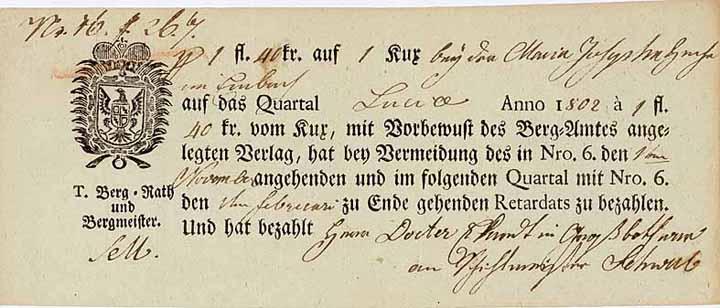 Nr. 16. f. 26.
1 fl. 40 kr. auf 1 Kux bey der Maria Josepha Zeche
auf das Quartal Luciæ Anno 1802 à 1 fl.
40 kr. vom Kux, mit Vorbewust des Berg-Amtes ange-
legten Verlag, hat bey Vermeidung des in Nro. 6. den
November angehenden und im folgenden Quartal mit Nro. 6.
den Februari zu Ende gehenden Retardats zu bezahlen.
Und hat bezahlt Herrn Docter in
an Schichtmeister
T. Berg-Rath
und
Bergmeister.